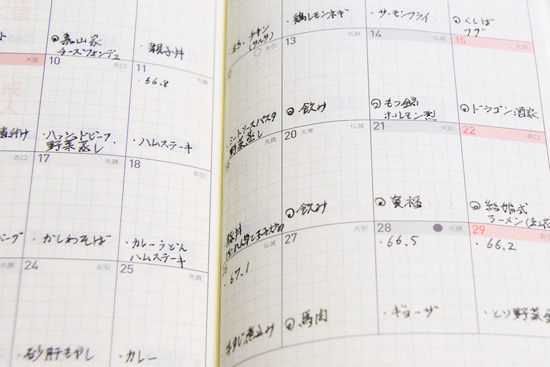 ・嘉山家
チーズフォンデュ
・親子丼
大安
赤口
先勝
10
11
・66.8
・ハッシュドビーフ
野菜蒸し
・ハムステーキ
先勝
友引
17
18
・かしわそば
・カレーうどん
ハムステーキ
友引
先負
24
25
・砂肝もやし
・カレー
・チキン
・鶏レモンネギ
・サーモンフライ
・くしば
フグ
仏滅
13
14
大安
15
ミートソースパスタ
野菜蒸し
飲み
もつ鍋
ホルモン
ドラゴン酒家
先負
20
大安
21
22
赤口
豚丼
飲み
寅福
結婚式
ラーメン
仏滅
27
28
先負
29
友引
・67.1
・66.5
・66.2
馬肉
・ギョーザ
・とり野菜